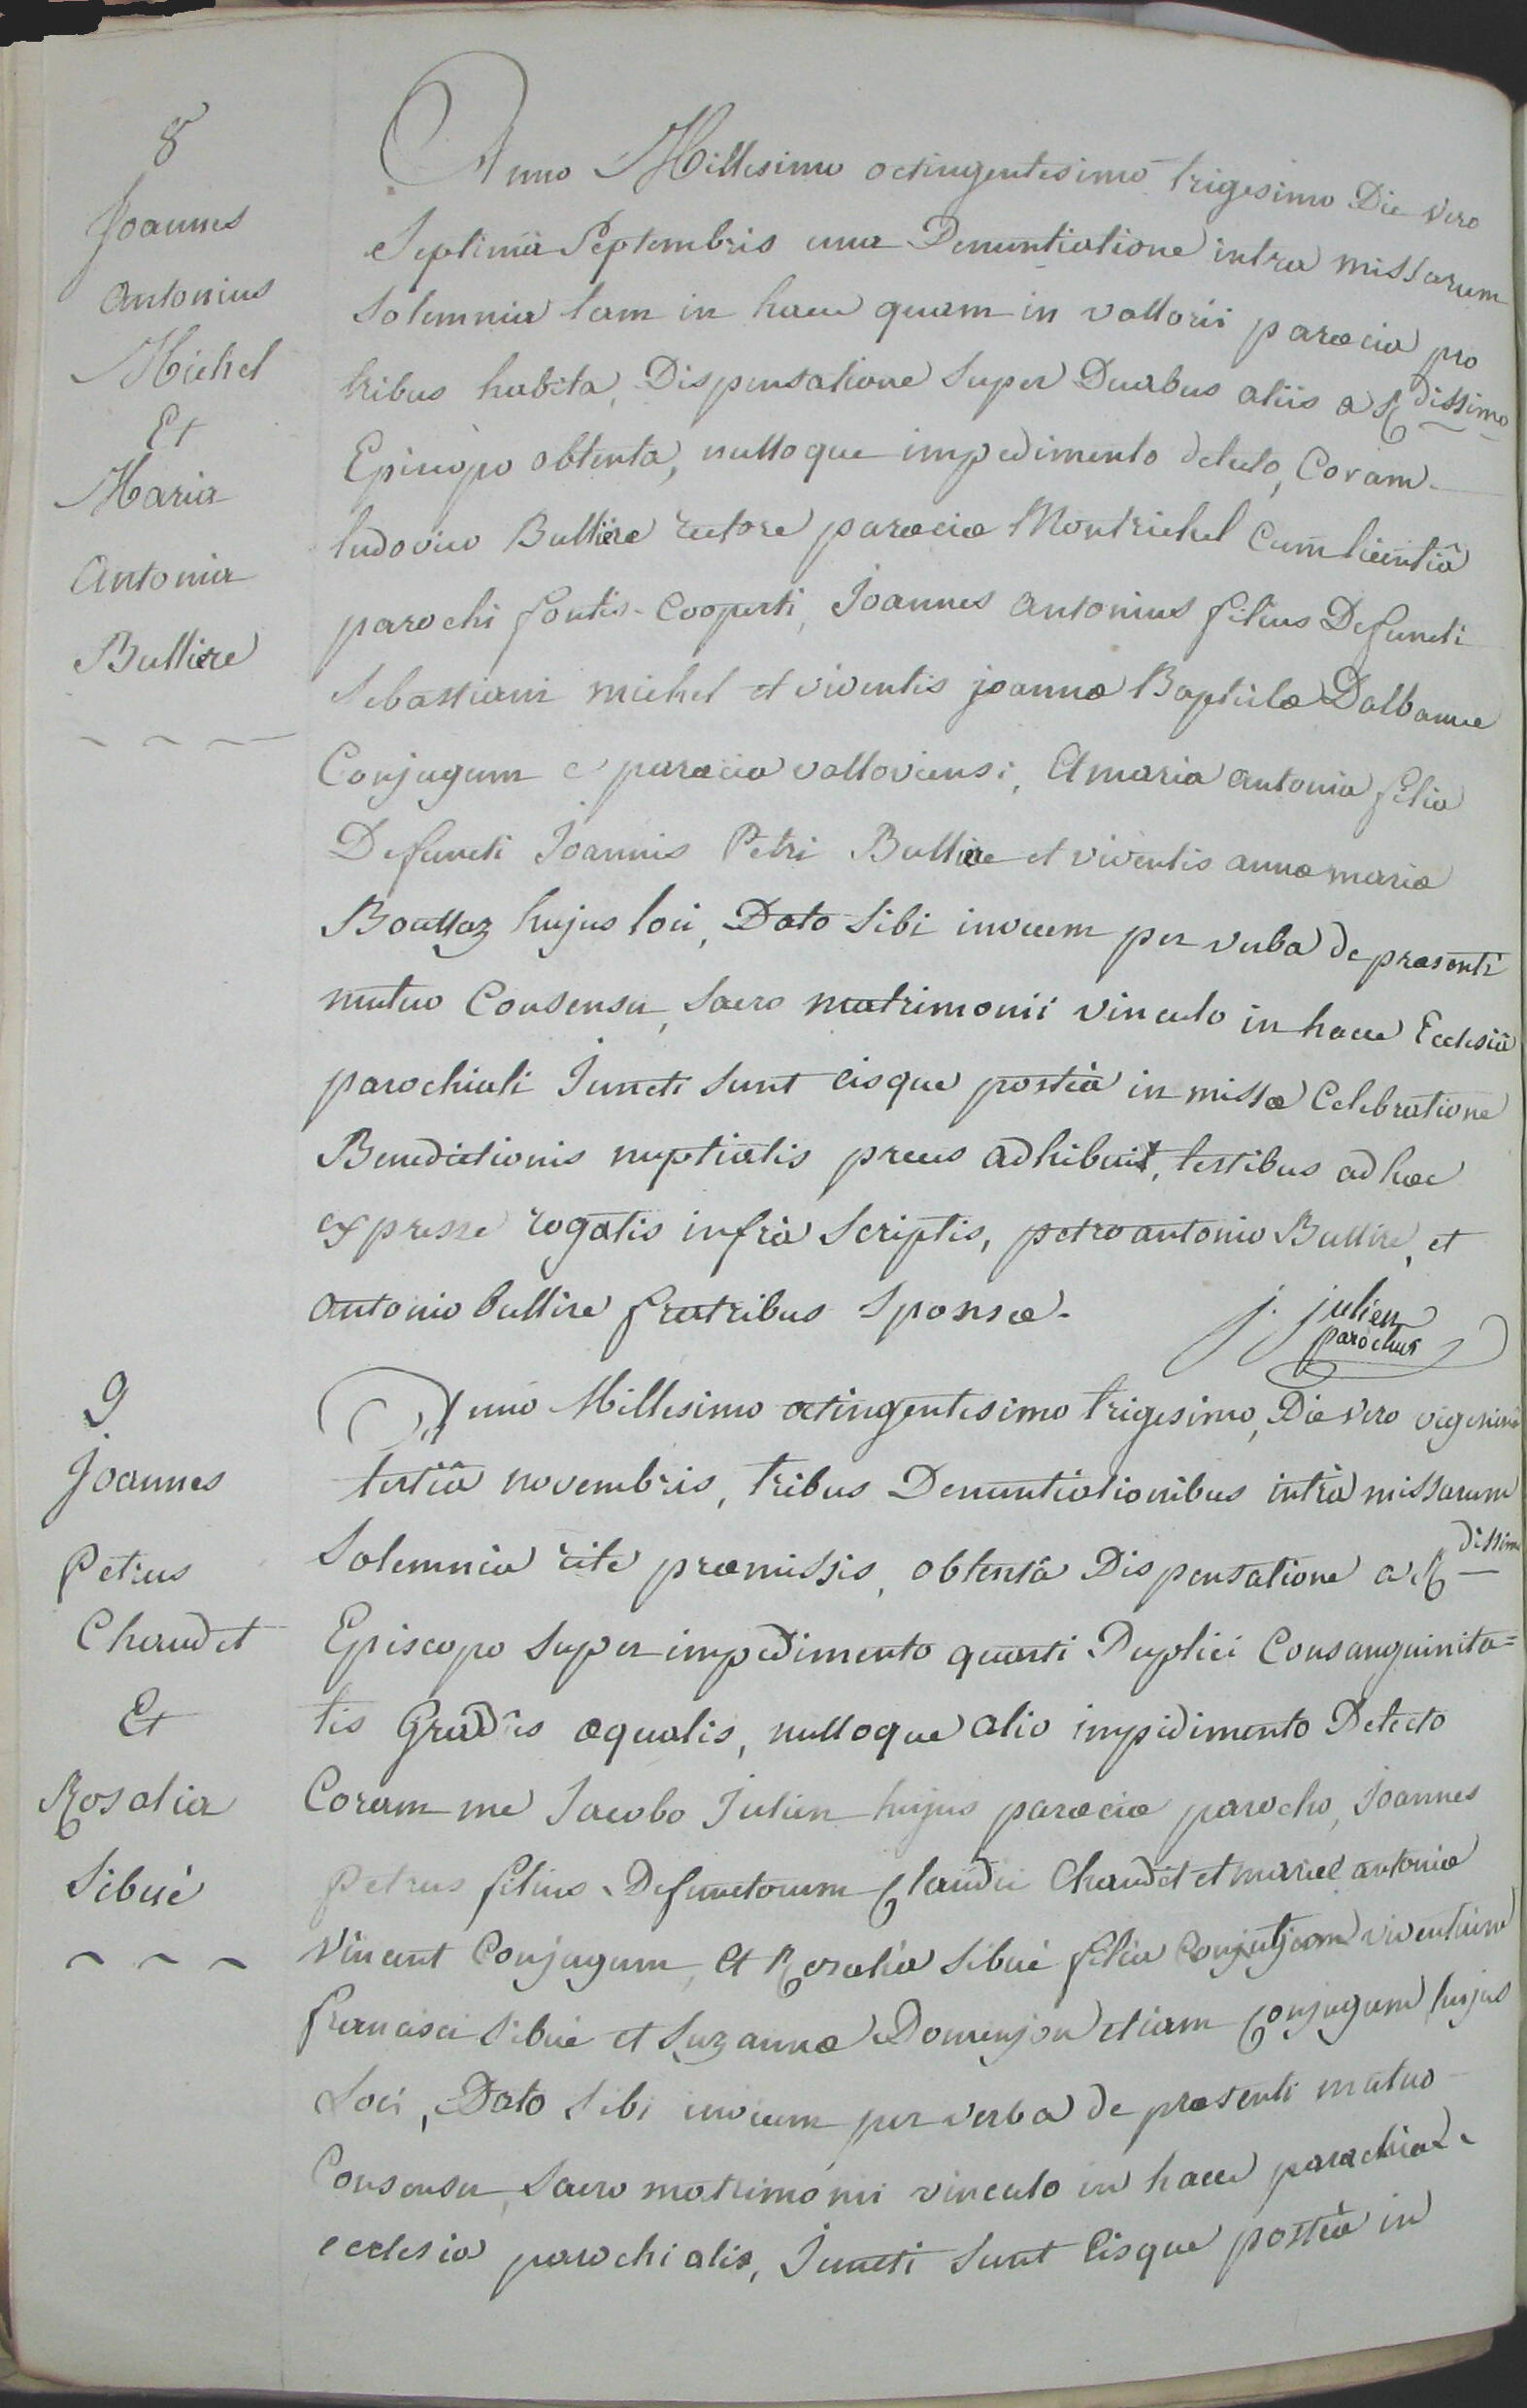 8
Joannes
Antonius
Michel
Et
Maria
Antonia
Bulliere
Anno Millesimo octingentesimo trigesimo Die vero
Septimâ Septembris una Denuntiatione intra missarum
Solemnia tam in hacce quam in vallorii parœcia pro
tribus habita, Dispensatione super Duabus aliis a R dissimo
Episcopo obtenta, nulloque impedimento detecto, Coram
ludovico Bulliere rectore parœciæ Montrichel cum licentiâ
parochi fontis-Cooperti, Joannes antonius filius Defuncti
Sebastiani michel et viventis joannæ Baptistæ Dalbanne
Conjugum e parœcia valloviensi, Et maria antonia filia
Defuncti Joannis Petri Bulliere et viventis annæ mariæ
Boullaz hujus loci, Dato Sibi invicem per verba de præsenti
mutuo Consensu, Sacro matrimonii vinculo in hacce Ecclesiâ
parochiali Juncti Sunt eisque posteà in missæ Celebratione
Benedictionis nuptialis preces adhibuit, testibus ad hoc
expresse rogatis infrà Scriptis, petro antonio Bullire, et
antonio bullire fratribus Sponsæ.
j. julien
parochus
9
Joannes
Petrus
Chaudet
Et
Rosalia
Sibué
Anno Millesimo octingentesimo trigesimo, Die vero vigesimâ
tertiâ novembris, tribus Denuntiationibus intrà missarum
Solemnia rite præmissis, obtentâ Dispensatione a R dissimo
Episcopo Super impedimento quarti Duplici Consanguinita=
tis Gradûs æqualis, nulloque alio impedimento Detecto
Coram me Jacobo Julien hujus parœciæ parocho, Joannes
Petrus filius Defunctorum Claudii Chaudet et mariæ antoniæ
Vincent Conjugum, et Rosalia Sibué filia Conjugum viventium
francisci Sibué et Suzannæ Dominjon etiam Conjugum hujus
Loci, Dato Sibi invicem per verba de præsenti mutuo
Consensu, Sacro matrimonii vinculo in hacce
ecclesia parochialis, Juncti Sunt Eisque posteà in